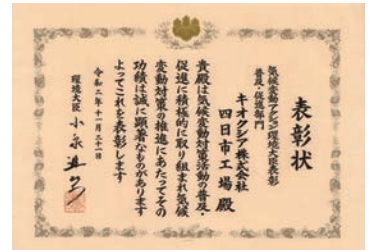 表彰状
気候変動アクション環境大臣表彰
普及・促進部門
キオクシア株式会社
四日市工場 殿
貴殿は気候変動対策活動の普及・
促進に積極的に取り組まれ気候
変動対策の推進にあたってその
功績は誠に顕著なものがあります
よってこれを表彰します
令和二年十一月三十一日
環境大臣 小泉進次郎